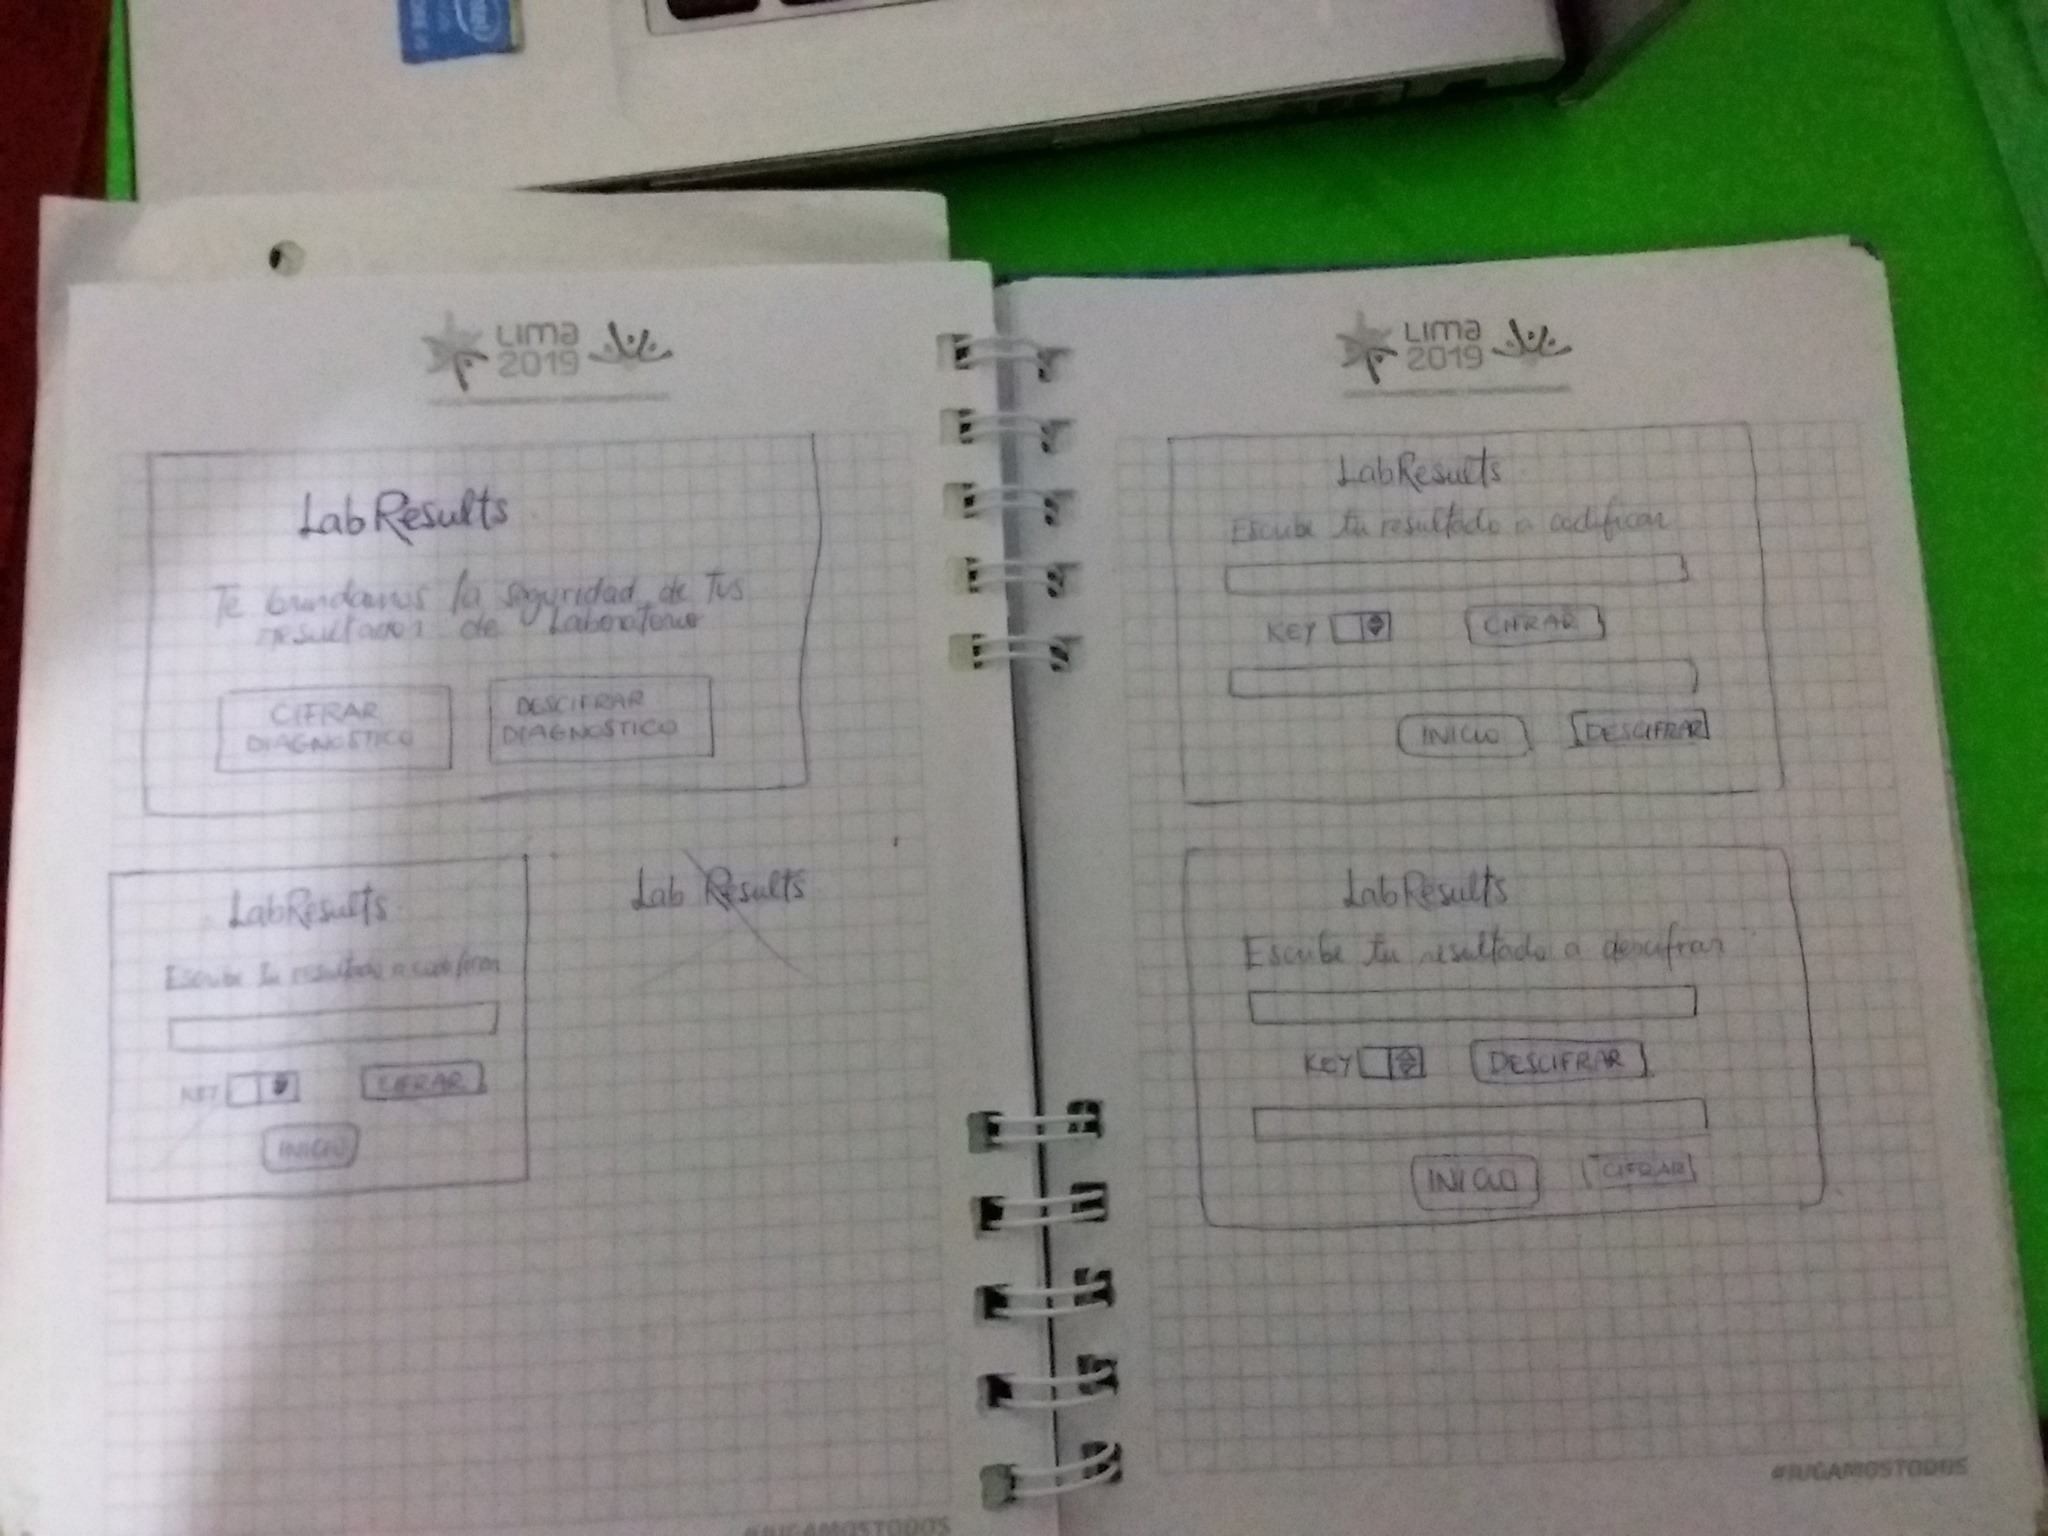 LIMA
2019
LabResults
Te brindamos la seguridad de Tus
resultados de Laboratorio
CIFRAR
DIAGNOSTICO
DESCIFRAR
DIAGNOSTICO
LabResults
Escribe tu resultado a codificar
KEY
CIFRAR
INICIO
Lab Results
#JUGAMOSTODOS
LIMA
2019
LabResults
Escribe tu resultado a codificar
KEY
CIFRAR
INICIO
DESCIFRAR
LabResults
Escribe tu resultado a descifrar
KEY
DESCIFRAR
INICIO
CIFRAR
#JUGAMOSTODOS